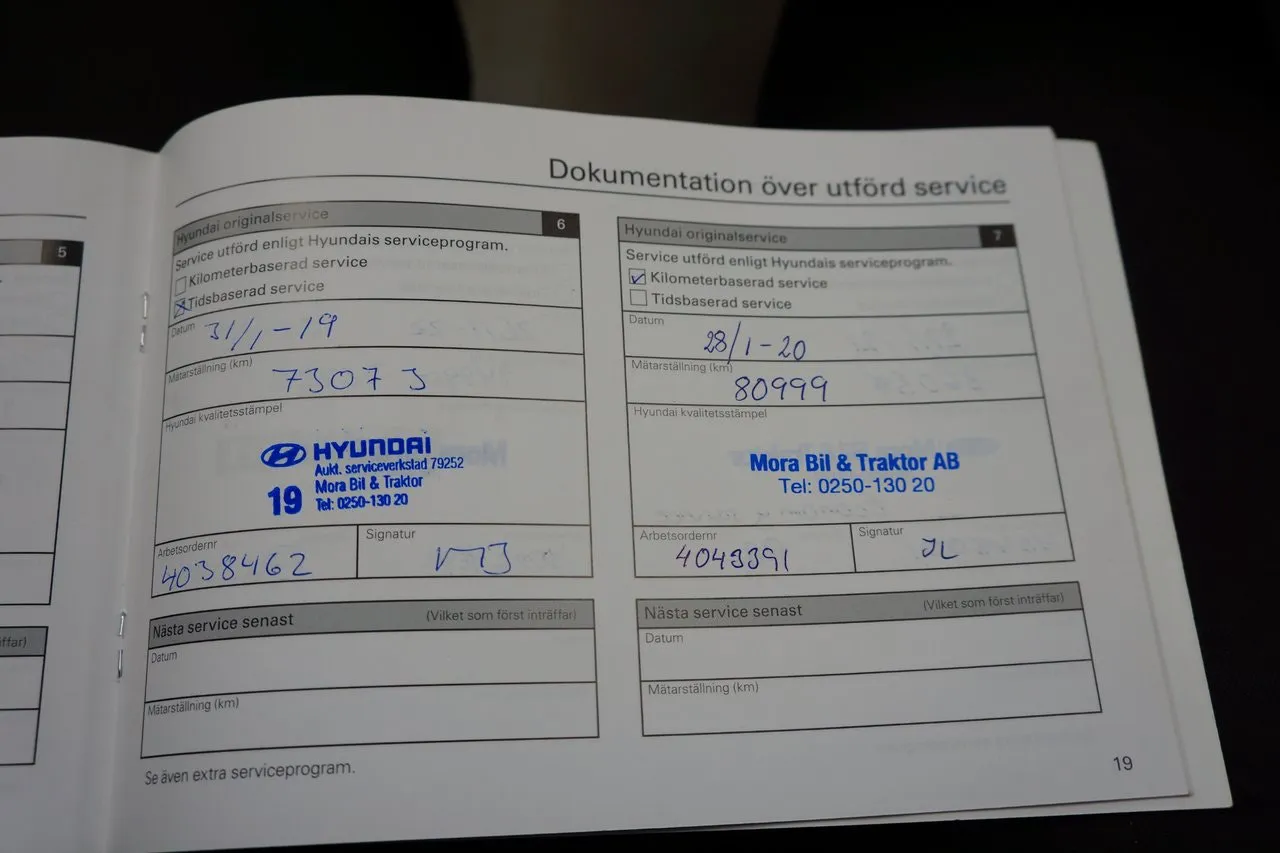 Dokumentation över utförd service
5
Hyundai originalservice 6
Service utförd enligt Hyundais serviceprogram.
Kilometerbaserad service
Tidsbaserad service
Datum 31/1-19
Mätarställning (km) 73073
Hyundai kvalitetsstämpel
HYUNDAI
Aukt. serviceverkstad 79252
19 Mora Bil & Traktor
Tel: 0250-130 20
Arbetsordernr 4038462
Signatur
Nästa service senast (Vilket som först inträffar)
Datum
Mätarställning (km)
Se även extra serviceprogram.
Hyundai originalservice 7
Service utförd enligt Hyundais serviceprogram.
Kilometerbaserad service
Tidsbaserad service
Datum 28/1-20
Mätarställning (km) 80999
Hyundai kvalitetsstämpel
Mora Bil & Traktor AB
Tel: 0250-130 20
Arbetsordernr 4049391
Signatur JL
Nästa service senast (Vilket som först inträffar)
Datum
Mätarställning (km)
19